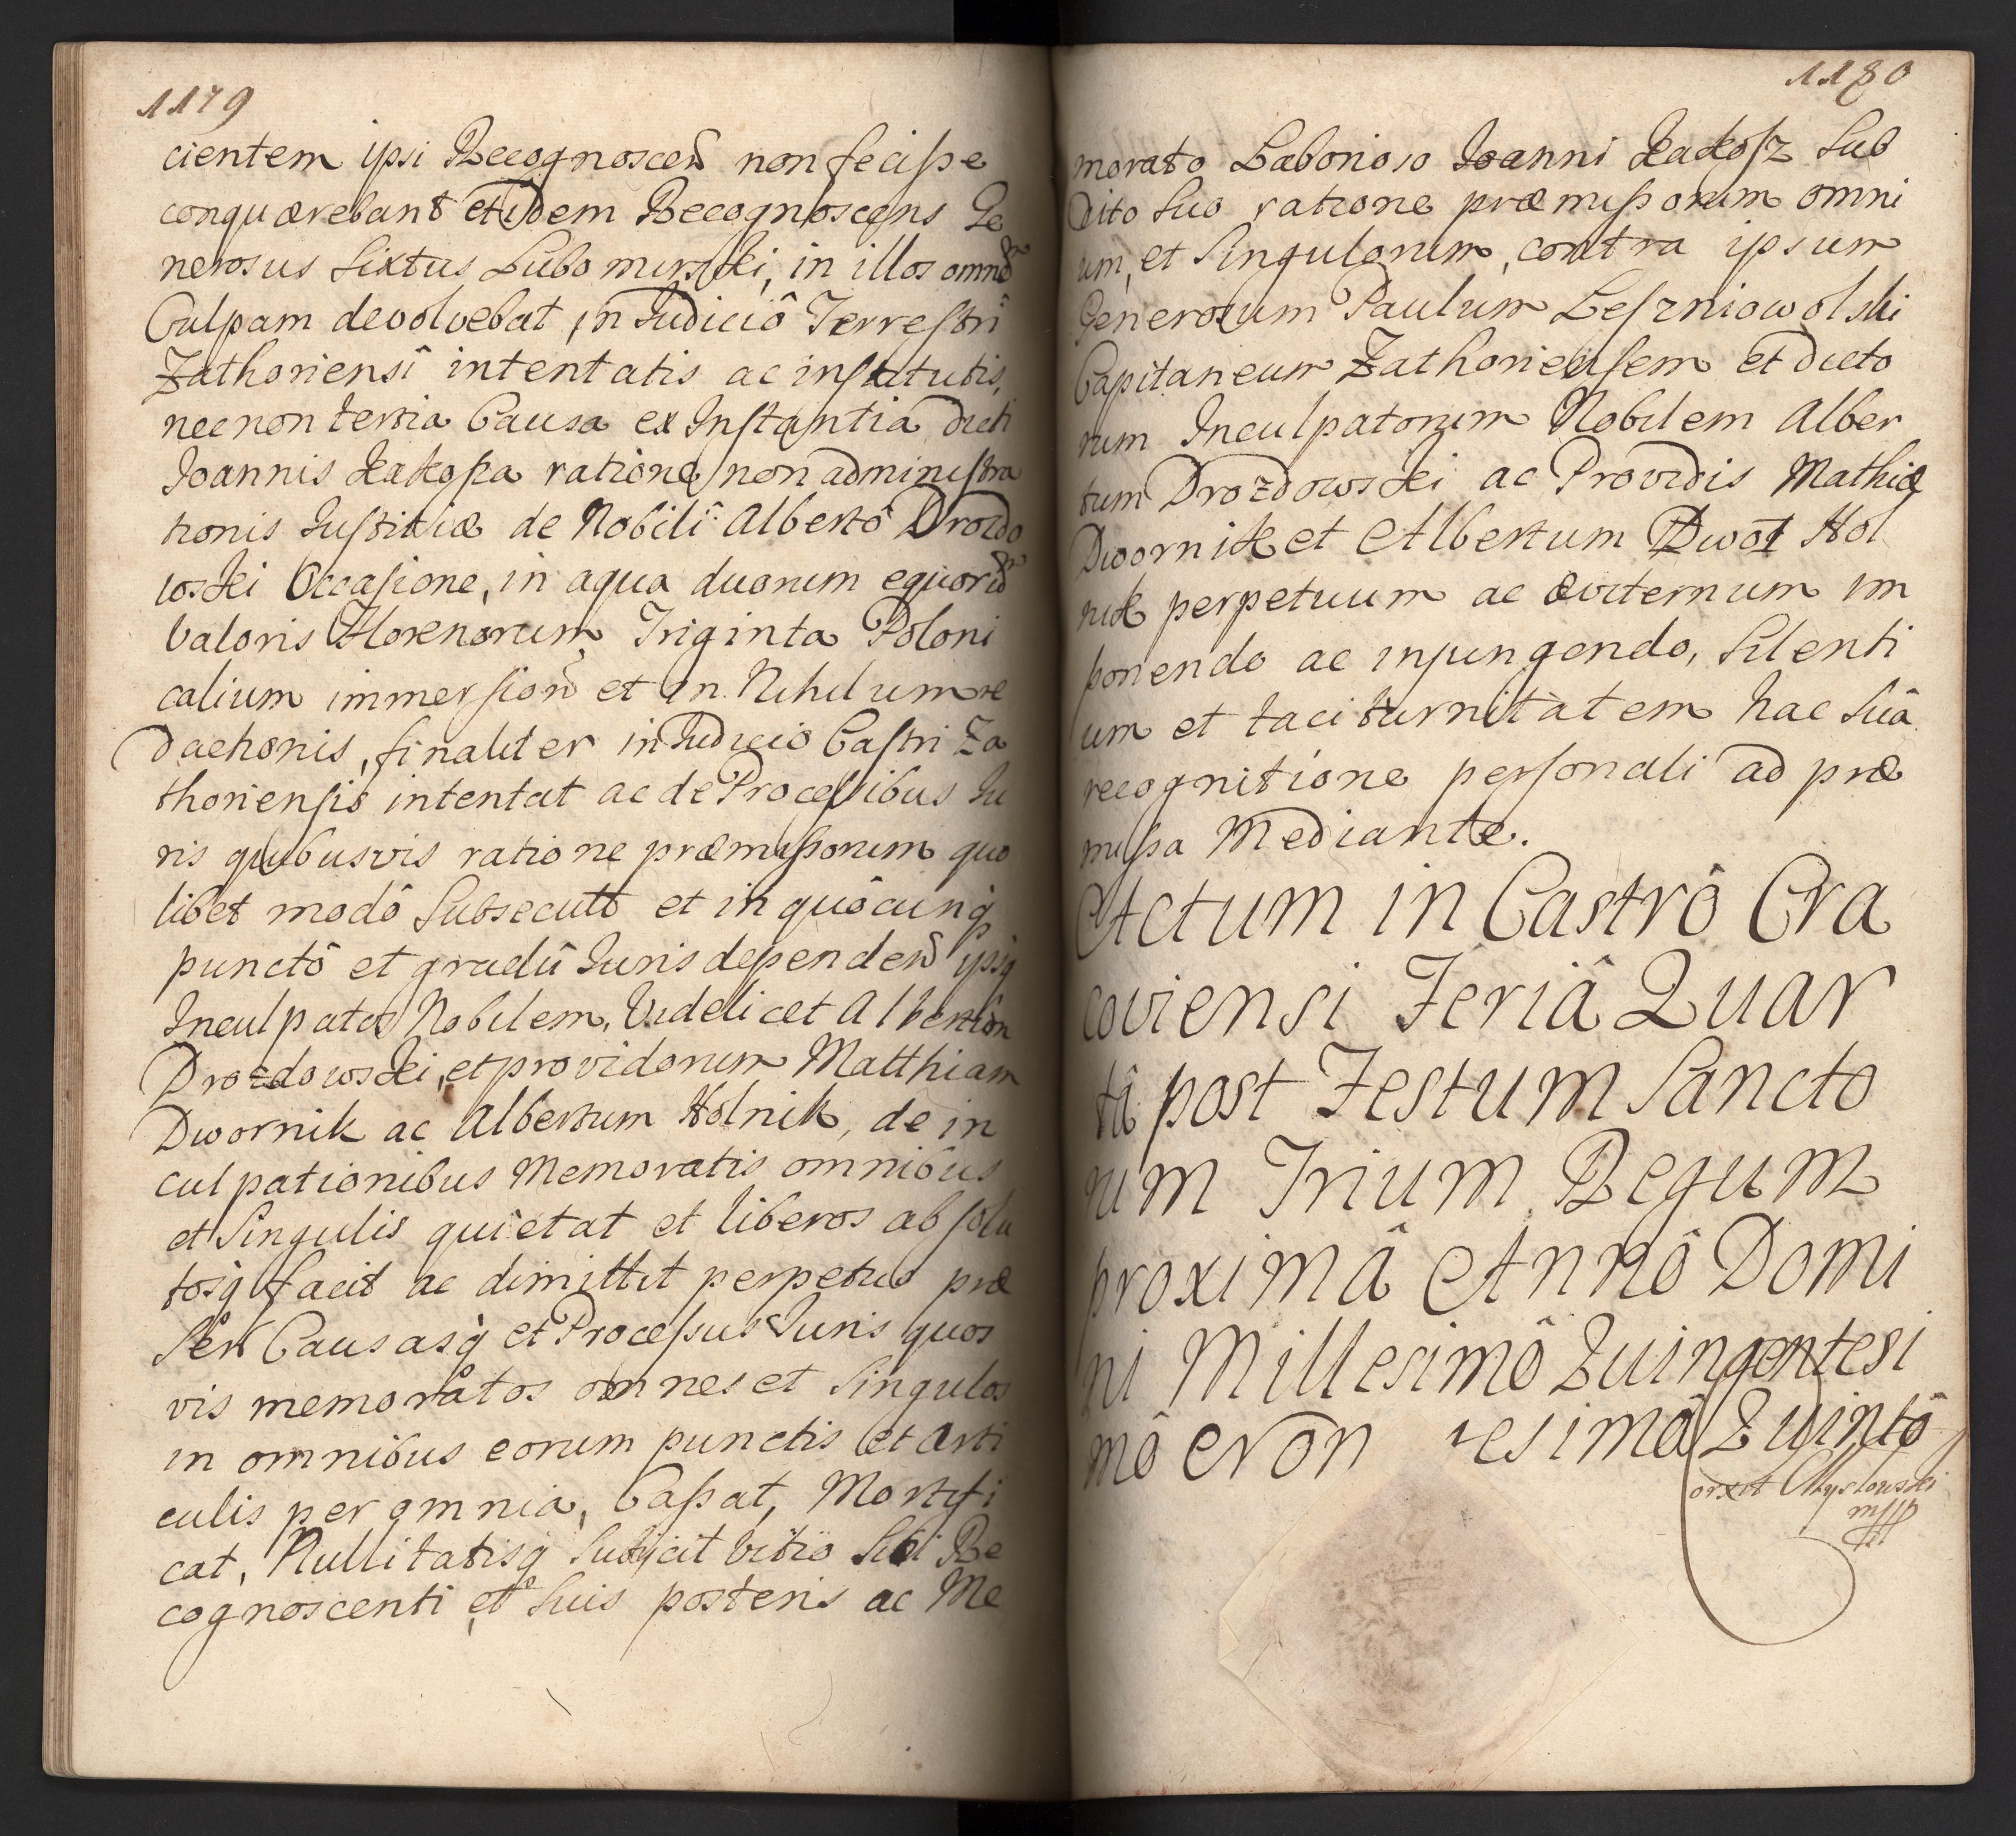 1179
cientem ipsi Recognoscen̄ non fecisse
conquærebant et idem Recognoscens Ge
nerosus Sixtus Lubomirski, in illos omnē
Culpam devolvebat, in Iudiciô Terrestri
Zathoriensî intentatis ac institutis,
nec non tertia Causa ex Instantia dicti
Joannis Kakosza ratione non administra
tionis Iustitiæ de Nobilî Albertô Drozdo
wski Occasione, in aqua duorum equorū
Valoris Florenorum Triginta Poloni
calium immersion̄ et in Nihilum re
dactionis, finaliter in Iudicio Castri Za
thoriensis intentat ac de Processibus Iu
ris quibusvis ratione præmissorum quo
libet modô Subsecutt et in quôcunq̨
punctô et gradû Iuris dependen̄ ipsiq̨
Inculpatos Nobilem, Videlicet Albertum
Drozdowski, et providorum Matthiam
Dwornik ac Albertum Holnik, de in
culpationibus Memoratis omnibus
et Singulis quietat et liberos absolu
tosq̨ facit ac dimittit perpetuo præ
Sen̄ Causasq̨ et Processus Iuris quos
vis memoratos omnes et Singulos
in omnibus eorum punctis et Arti
culis per omnia, Cassat, Mortifi
cat, Nullitatisq̨ Subijcit vitiô Sibi Re
cognoscenti et Suis posteris ac Me
1180
morato Laborioso Joanni Kakosz Sub
dito Suo ratione præmissorum omni
um, et Singulorum, contra ipsum
Generosum Paulum Leszniowolski
Capitaneum Zathoriensem et dicto
rum Inculpatorum Nobilem Alber
tum Drozdowski ac Providis Mathiæ
Dwornik et Albertum Hol
nik perpetuum ac æviternum im
ponendo ac injungendo, Silenti
um et taciturnitatem hac Suâ
recognitione personali ad præ
missa Mediante.
Actum in Castrô Cra
coviensi Feriâ Quar
tâ post Festum Sancto
rum Trium Regum
proximâ Annô Domi
ni Millesimô Quingentesi
mô Non esimô Quintô